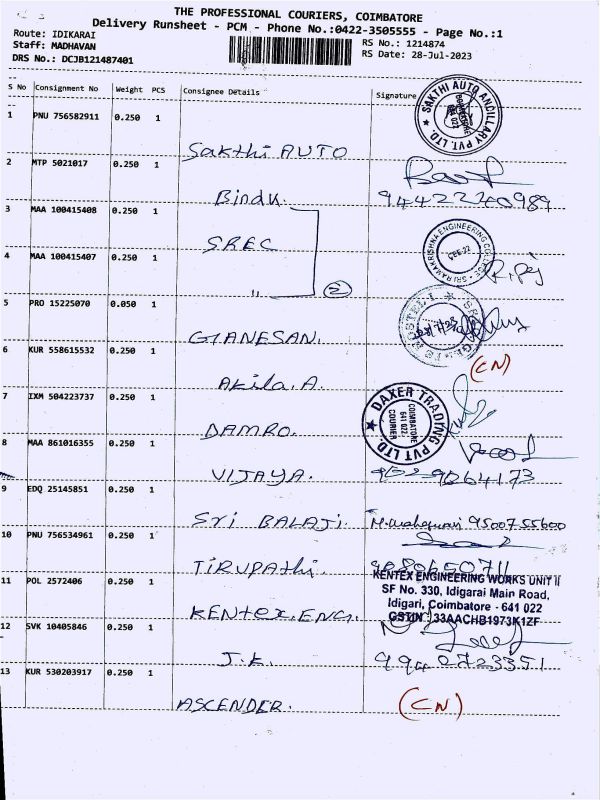 THE PROFESSIONAL COURIERS, COIMBATORE
Delivery Runsheet - PCM - Phone No.:0422-3505555 - Page No.:1
Route: IDIKARAI
Staff: MADHAVAN
DRS No.: DCJB121487401
RS No.: 1214874
RS Date: 28-Jul-2023
S No Consignment No Weight PCS Consignee Details Signature
SAKTHI AUTO ANCILLARY PVT. LTD.
1 PNU 756582911 0.250 1
Sakthi AUTO
2 MTP 5021017 0.250 1
Bindu.
9442220989
3 MAA 100415408 0.250 1
SREC
SRI RAMAKRISHNA ENGINEERING COLLEGE
4 MAA 100415407 0.250 1
"
②
5 PRO 15225070 0.050 1
GANESAN.
6 KUR 558615532 0.250 1
(CN)
Akila. A.
7 IXM 504223737 0.250 1
DAMRO.
DAXER TRADING PVT LTD
COIMBATORE
641 022
COURIER
8 MAA 861016355 0.250 1
VIJAYA.
9264173
9 EDQ 25145851 0.250 1
Sri BALAJI.
9500755600
10 PNU 756534961 0.250 1
TIRUPAthi.
11 POL 2572406 0.250 1
KENtex. ENG.
KENTEX ENGINEERING WORKS UNIT II
SF No. 330, Idigarai Main Road,
Idigari, Coimbatore - 641 022
GSTIN : 33AACHB1973K1ZF
12 SVK 10405846 0.250 1
J.K.
9940723351
13 KUR 530203917 0.250 1
ASCENDER.
(CN)